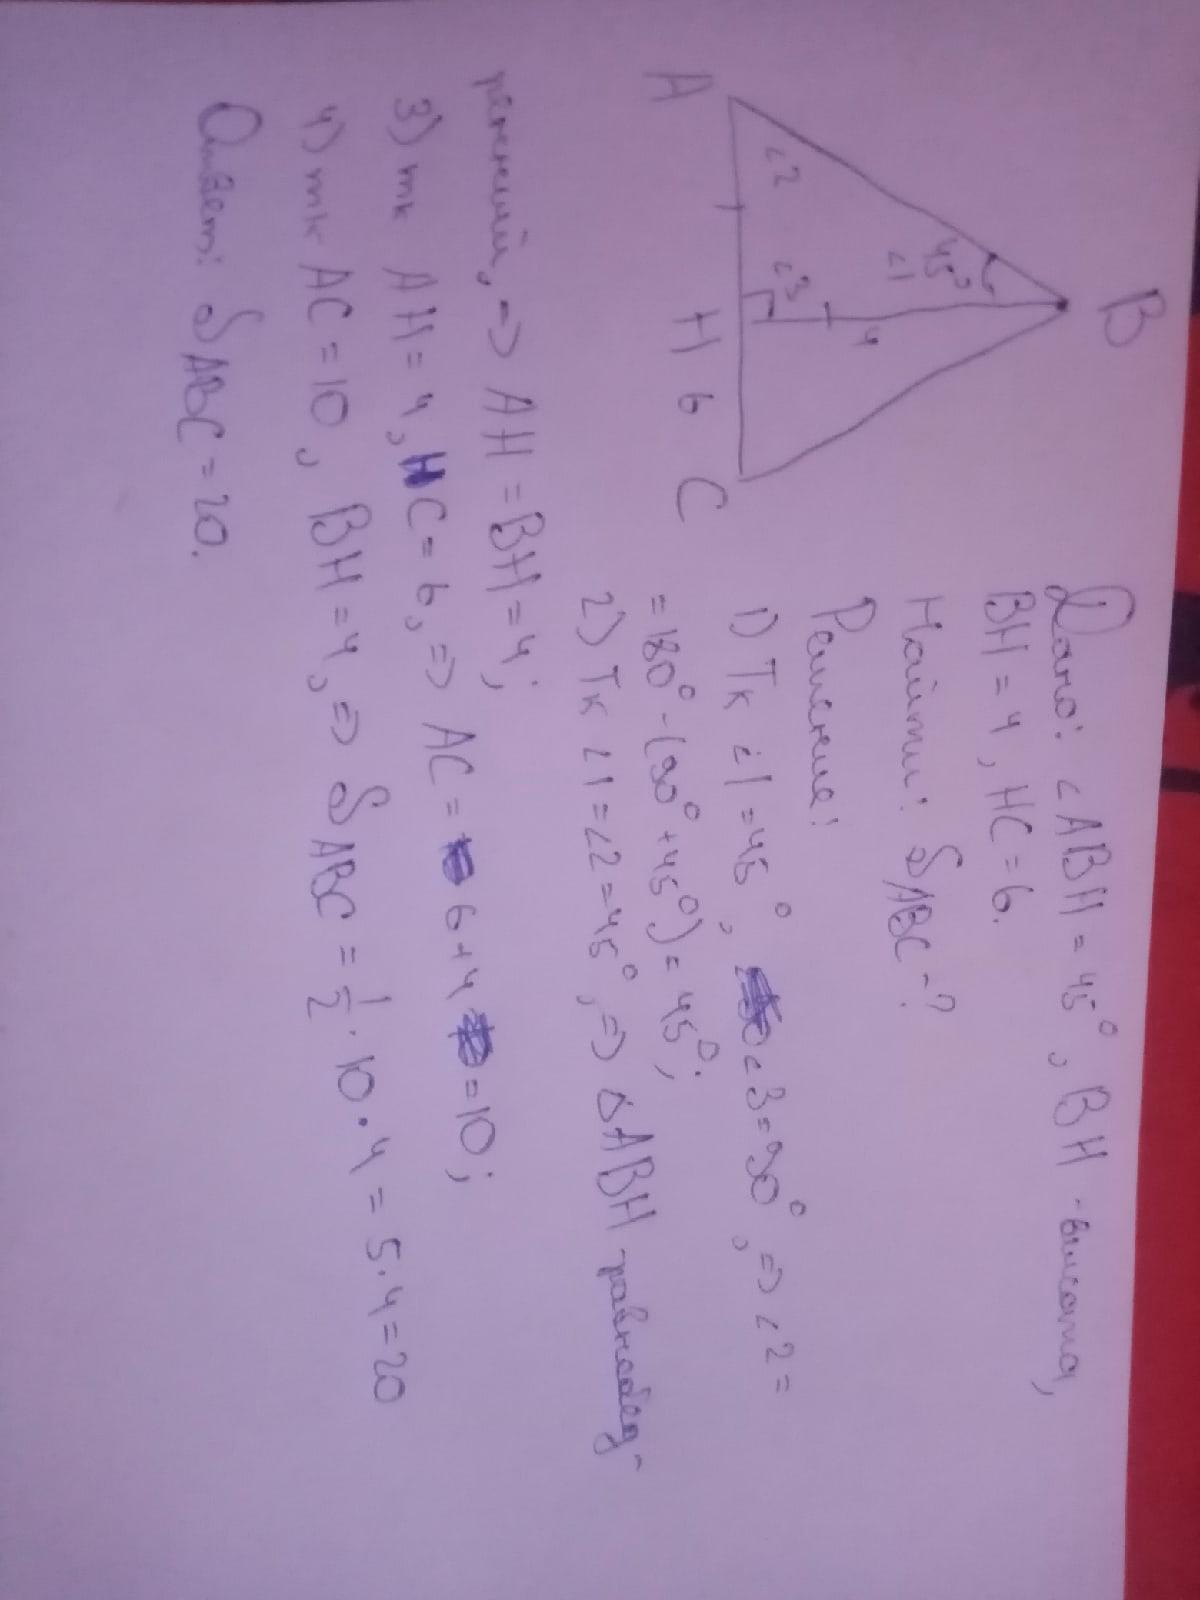 B
45°
∠1
4
∠2
∠3
A
H
6
C
Дано: ∠ABH = 45°, BH - высота,
BH = 4, HC = 6.
Найти: S ABC - ?
Решение:
1) Тк ∠1 = 45°, ∠3 = 90°, => ∠2 =
= 180° - (90° + 45°) = 45°;
2) Тк ∠1 = ∠2 = 45°, => △ABH равнобед-
ренний, => AH = BH = 4;
3) тк AH = 4, HC = 6, => AC = 6 + 4 = 10;
4) тк AC = 10, BH = 4, => S ABC = 1/2 · 10 · 4 = 5 · 4 = 20
Ответ: S ABC = 20.